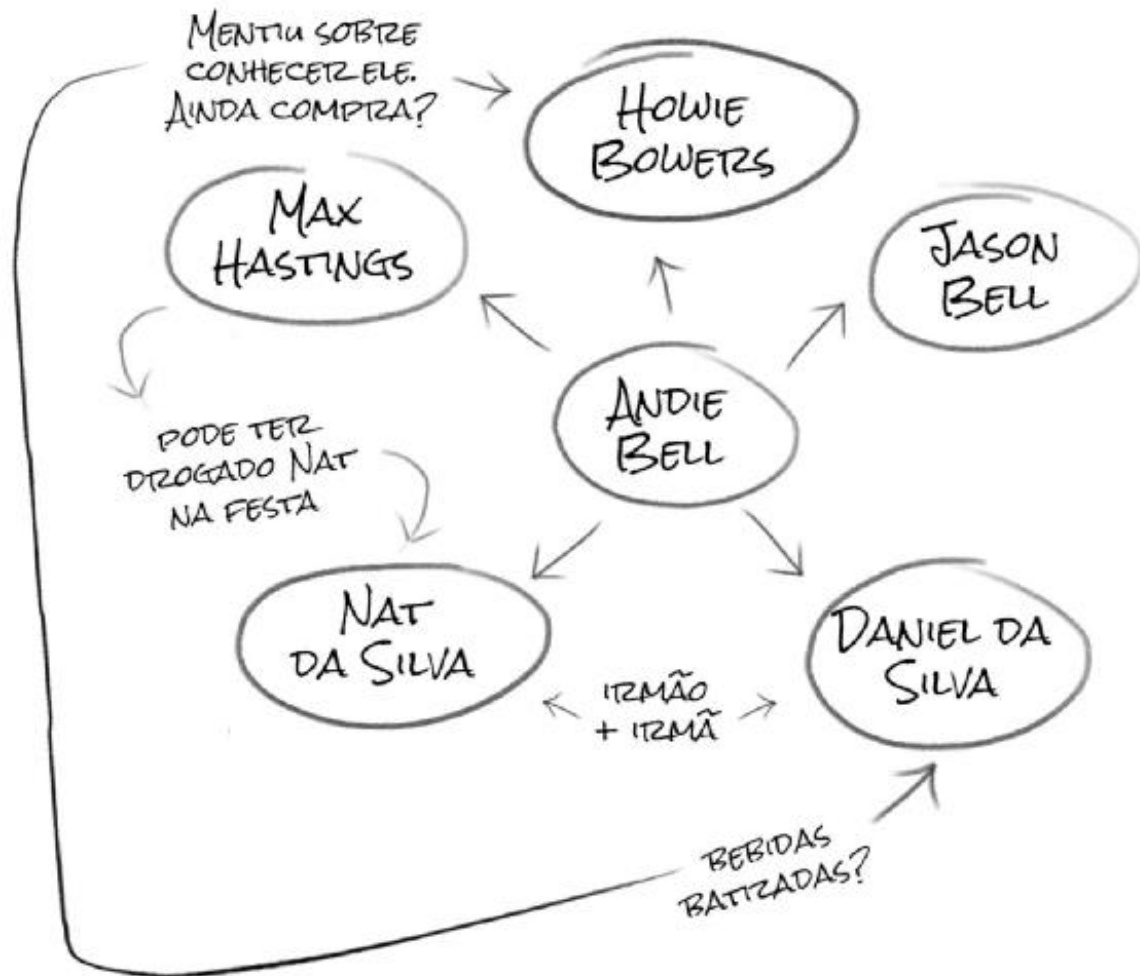 MENTIU SOBRE
CONHECER ELE.
AINDA COMPRA?
HOWIE
BOWERS
MAX
HASTINGS
JASON
BELL
ANDIE
BELL
PODE TER
DROGADO NAT
NA FESTA
NAT
DA SILVA
IRMÃO
+ IRMÃ
DANIEL DA
SILVA
BEBIDAS
BATIZADAS?